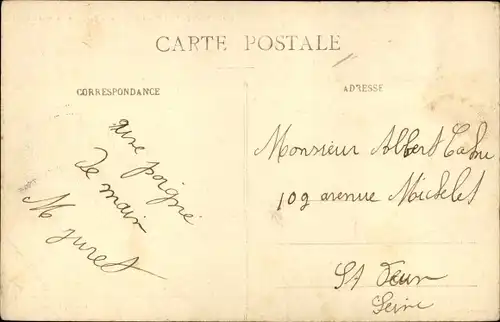 CARTE POSTALE
CORRESPONDANCE
Une poigné
de main
M Juret
ADRESSE
Monsieur Albert
109 avenue Michelet
St
Seine